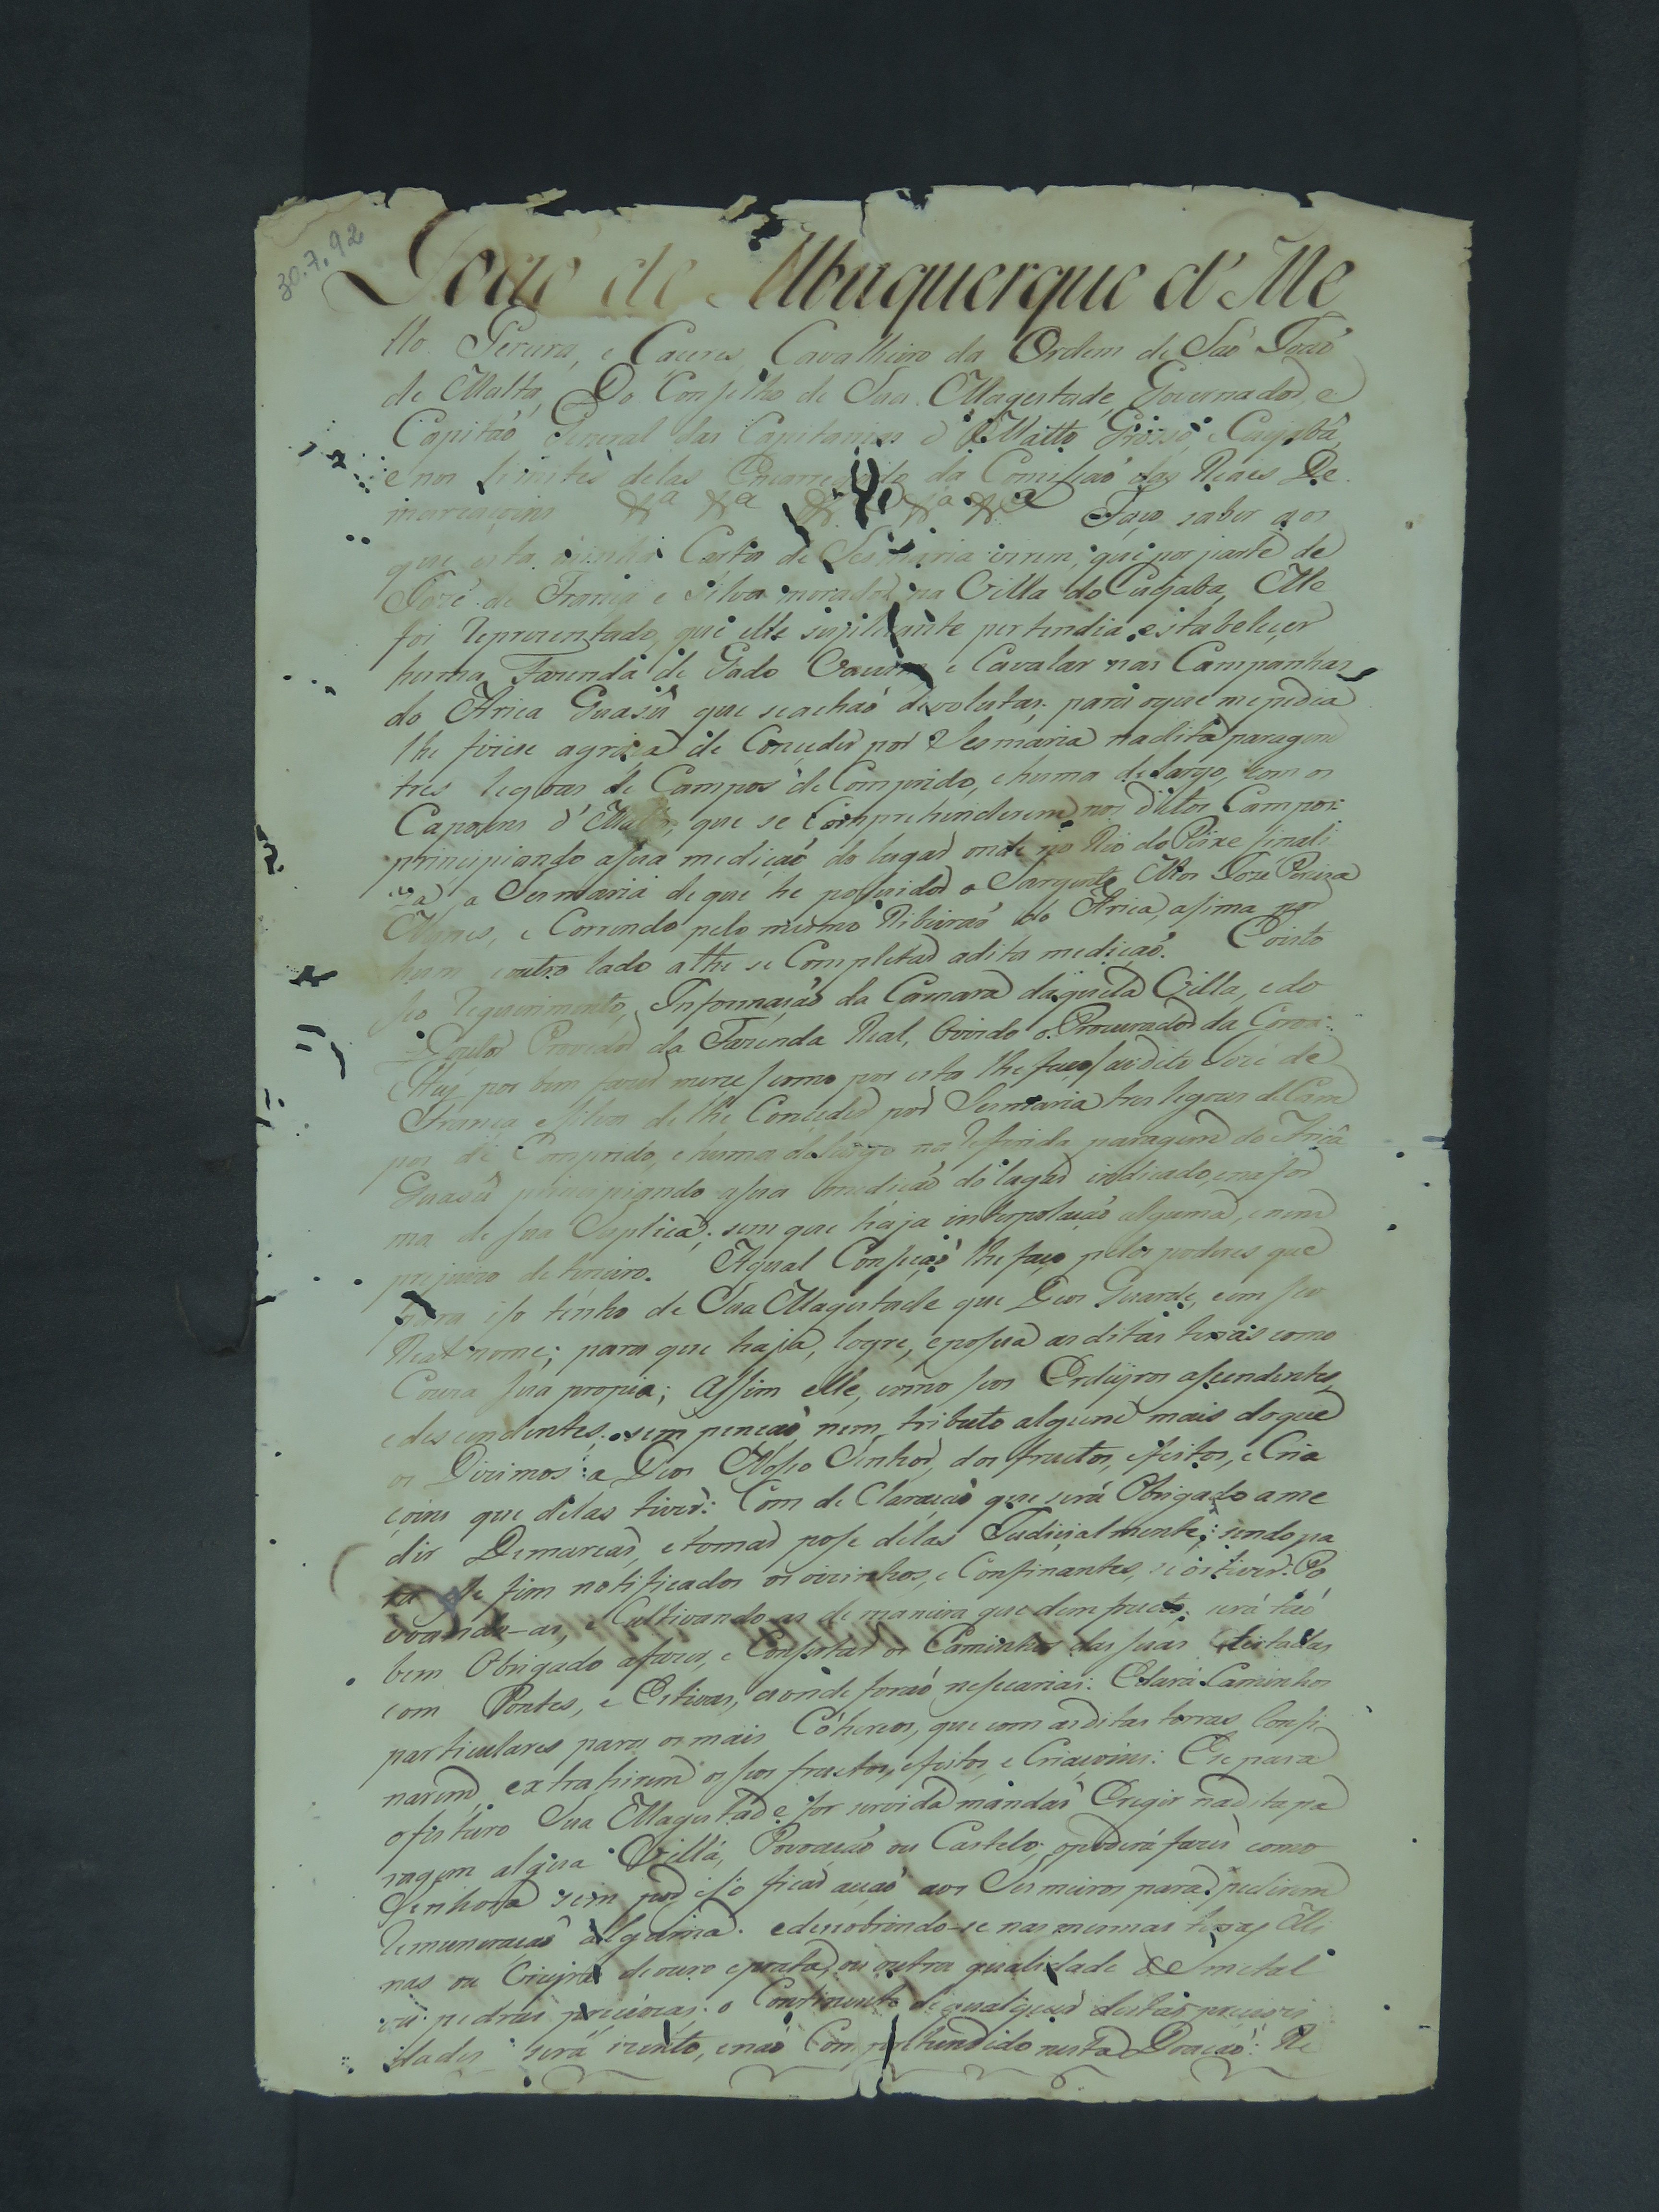 30.7.92
João de Albuquerque d' Me
llo Pereira, e Caceres Cavalheiro da Ordem de Saõ Joaõ
de Malta, Do Conselho de Sua Magestade, Governador, e
Capitaõ General das Capitanias d' Matto Grosso, e Cuyabá,
e nos limites delas Encarregado da Comissaõ das Reaes De
marcaçoins &a &a &a &a &a Faço saber aos
que esta minha Carta de Sesmaria virem, que por parte de
Jozé de França e Silva morador na Villa do Cuyaba, Me
foi reprezentado, que elle suplicante pertendia estabeleçer
huma Fazenda de Gado Vacum e Cavalar nas Campanhas
do Arica Guasû que se achaõ devolutas; para oque me pedia
lhe fizese agraça de Conçeder por Sesmaria nadita paragem
tres legoas de Campos de Comprido, e huma de largo, com os
Capoens d' Mato, que se Comprehenderem nos ditos Campos:
principiando asua mediçaõ do lugar onde no Rio do Peixe finali
za a Sesmaria de que he posuidor o Sargento Mor Jozé Pereira
Nunes, e Correndo pelo mesmo Ribeiraõ do Arica, asima por
hum e outro lado athe se Completar adita mediçaõ. E visto
seo requerimento, Informaçaõ da Camara daquela Villa, e do
Doutor Provedor da Fazenda Real, Ouvindo o Procurador da Coroa:
Hey por bem fazer merce (como por esta lhe faço) ao dito Jozé de
França e Silva de lhe Conceder por Sesmaria tres legoas de Cam
pos de Comprido, e huma de largo na referida paragem do Aricâ
Guasû principiando asua mediçaõ do lugar indicado, e na for
ma de sua Suplica; sem que haja interpolaçaõ alguma, e nem
prejuizo de terceiro. Aqual Conseçaõ lhe faço pelos poderes que
para iso tenho de Sua Magestade que Deos Guarde, e em seo
Real nome; para que haja, logre, e posua as ditas terras como
Couza sua propia; Assim elle, como seos Erdeyros asendentes,
e desendentes; sem pençaõ, nem tributo algum mais doque
os Dizimos a Deos Noso Senhor, dos fructos, efeitos, e Cria
çoins que delas tiver: Com de Claraçaõ que será Obrigado a me
dir Demarcar, e tomar pose delas Judicialmente; sendo pa
ra este fim notificados os vizinhos, e Confinantes, se os tiver: Po
voando-as, e Cultivando-as de maneira que dem fructo; será taõ
bem Obrigado afazer, e Consertar os Caminhos das suas testadas
com Pontes, e Estivas, aonde foraõ neseçarias: E dará Caminhos
particulares para os mais Cohereos, que com as ditas terras Confi
narem, extrahirem os seos fructos, efeitos, e Criaçoins: E se para
ofuturo Sua Magestade for servida mandar Erigir nadita pa
ragem algûa Villa, Povoaçaõ ou Castelo; o poderá fazer como
Senhora sem por iso ficar açaõ aos Sesmeiros para pedirem
remuneraçaõ alguma: e descobrindo-se nas mesmas terras Mi
nas ou Vieyros de ouro e prata, ou outra qualidade de metal
ou pedras preciozas; o Continente de qualquer destas precizi
dades será izento, enaõ Comprehendido nesta Doaçaõ: Re